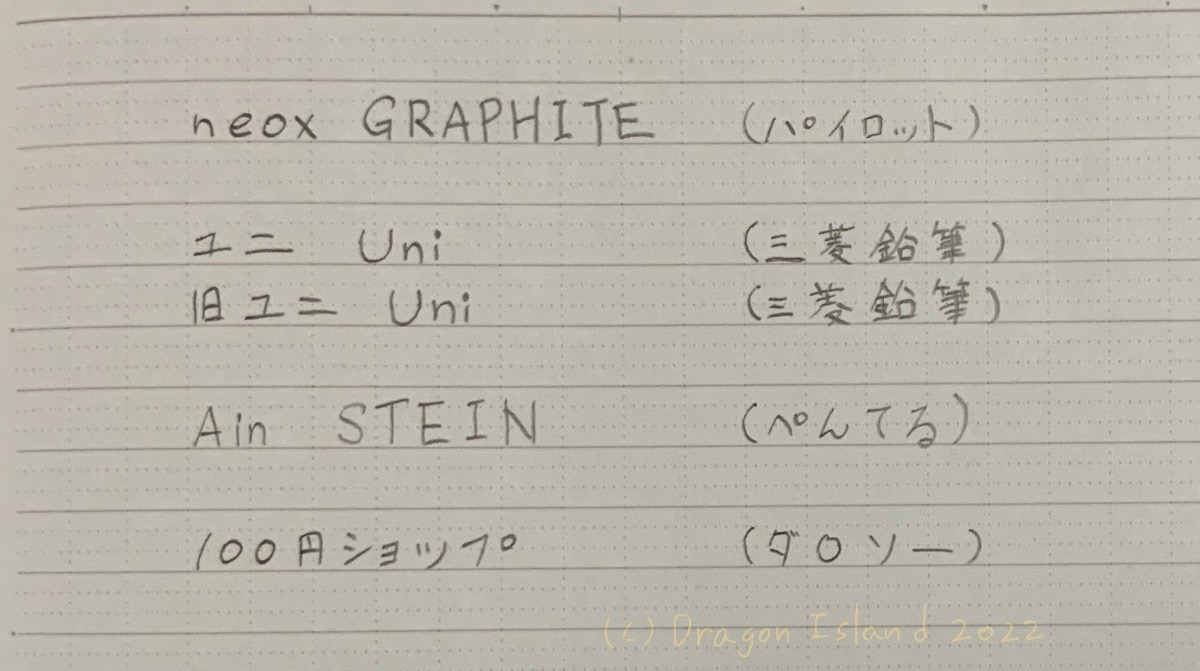 neox GRAPHITE (パイロット)
ユニ Uni (三菱鉛筆)
旧ユニ Uni (三菱鉛筆)
Ain STEIN (ぺんてる)
100円ショップ (ダロソー)
(c) Dragon Island 2022